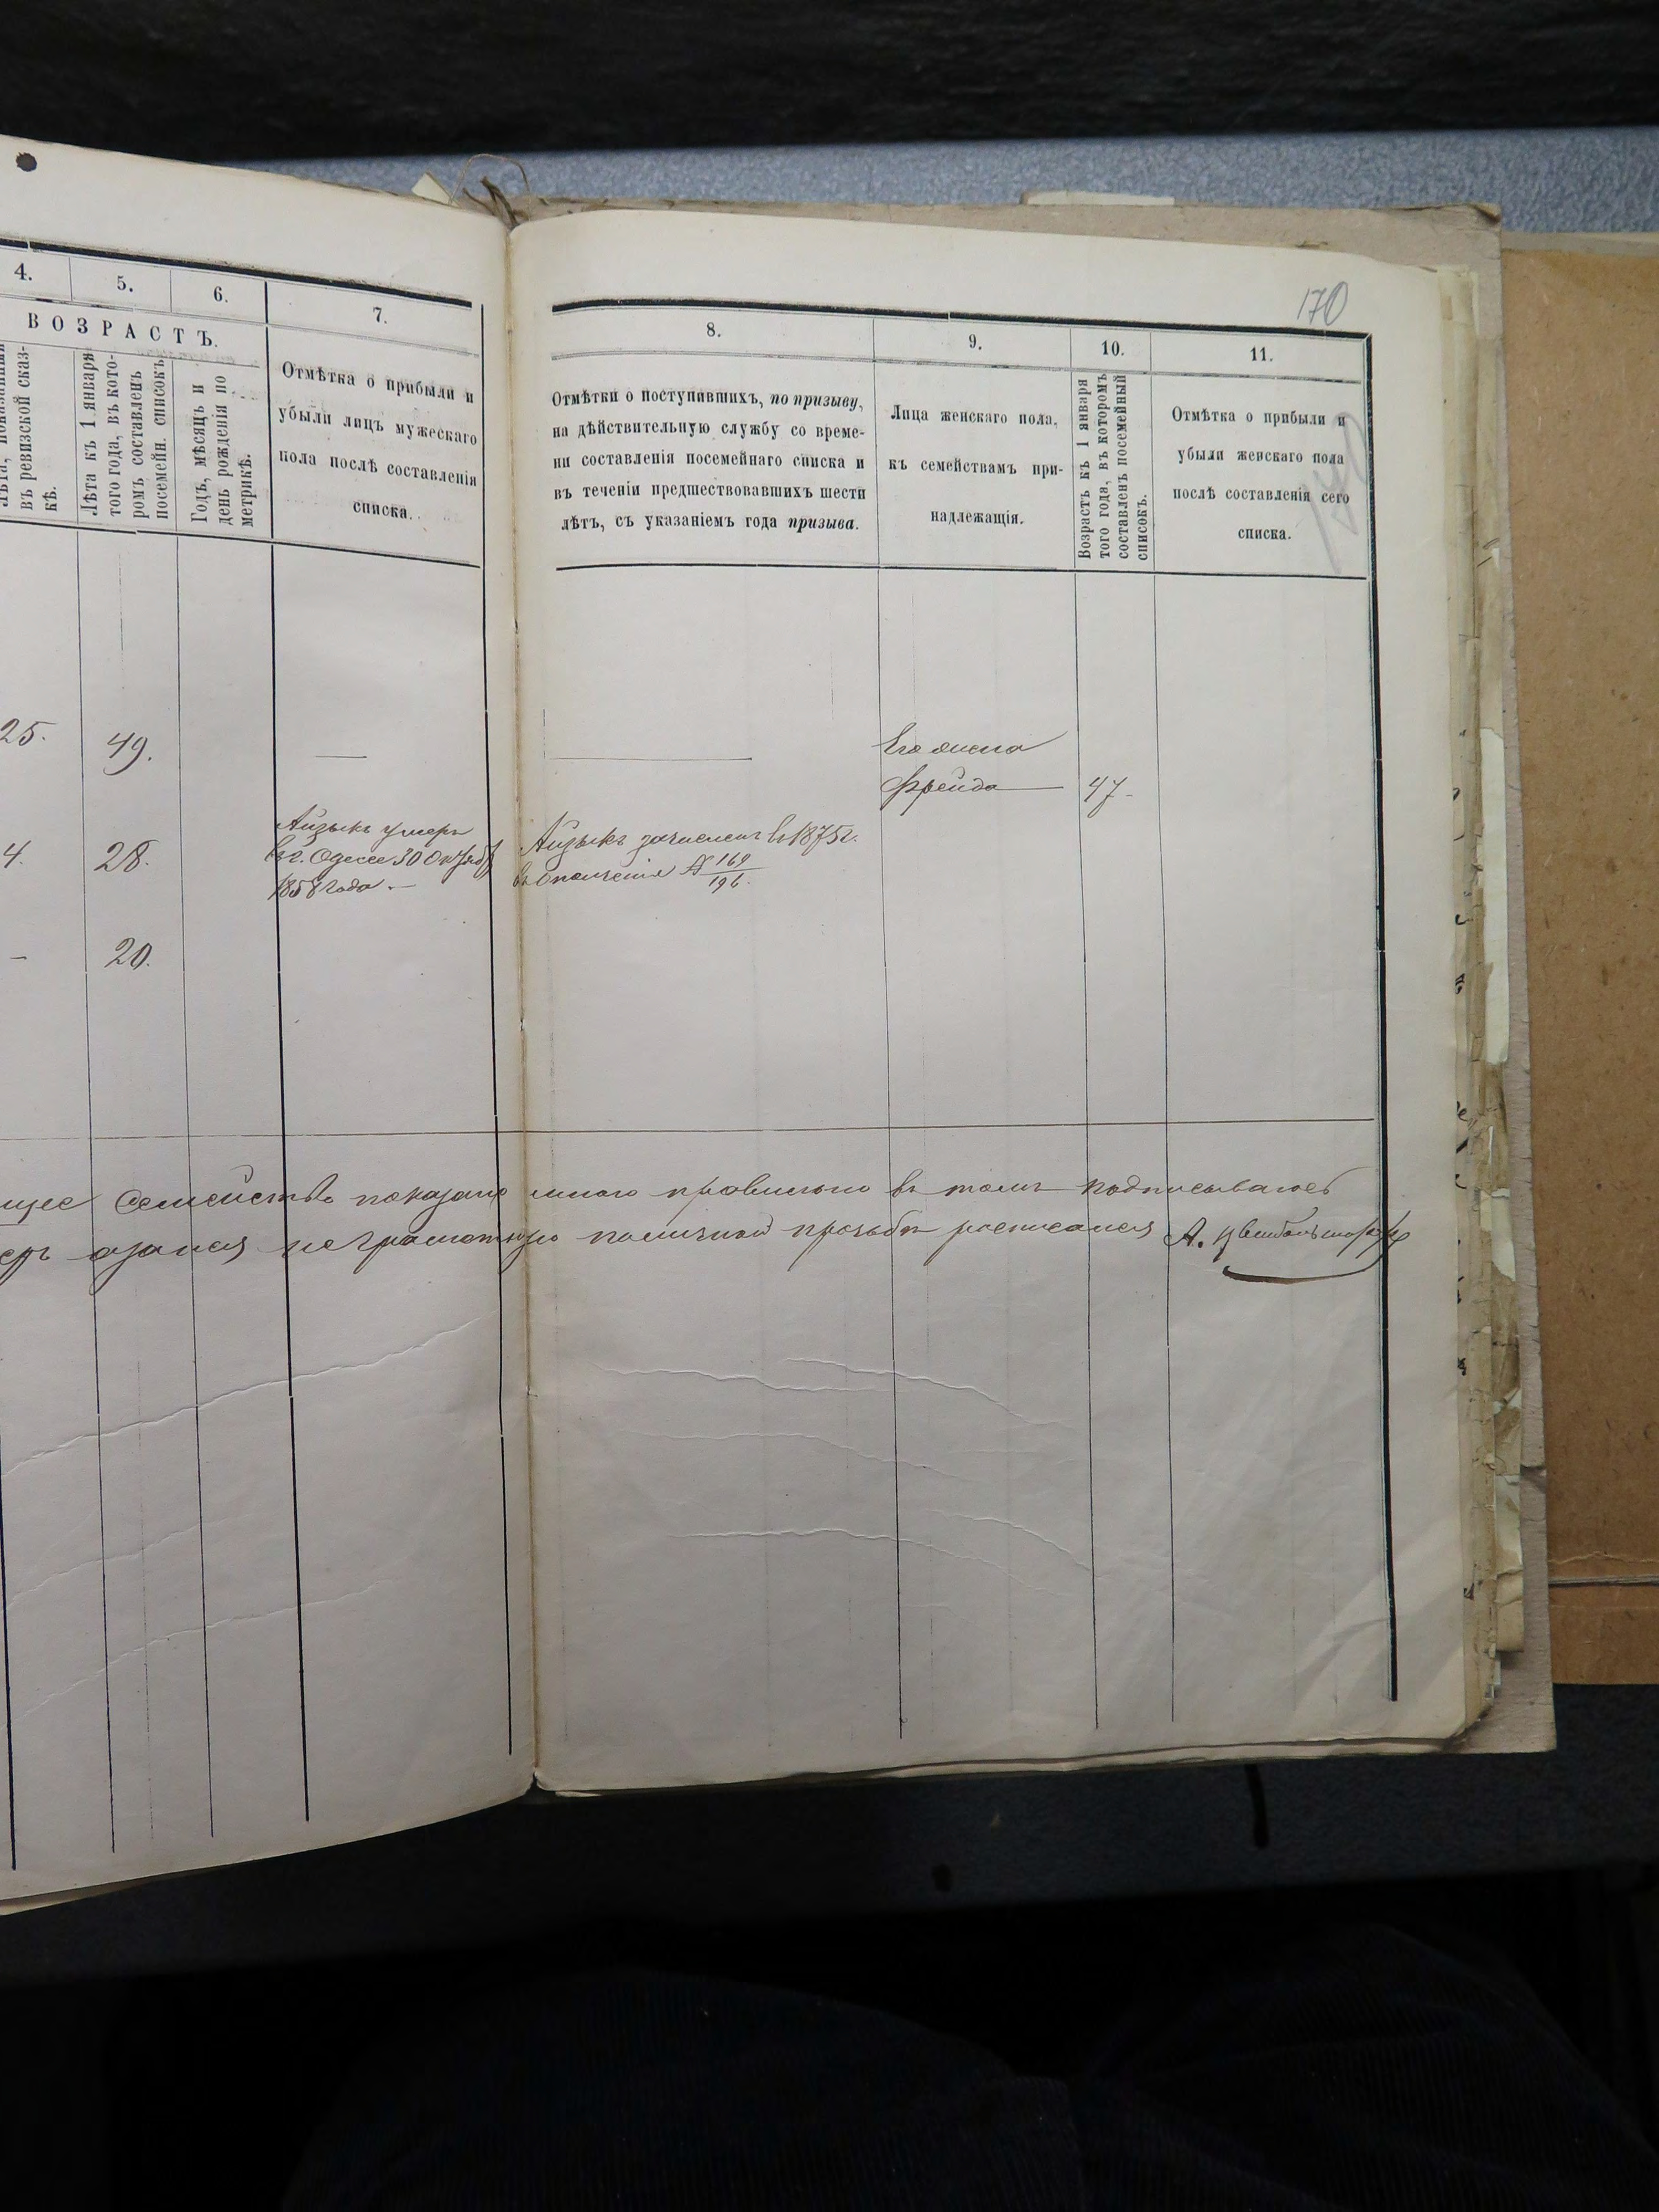 170
4.
5.
6.
7.
ВОЗРАСТЪ.
въ ревизской сказ-
кѣ.
Лѣта къ 1 января
того года, въ кото-
ромъ составленъ
посемейн. списокъ
Годъ, мѣсяцъ и
день рожденія по
метрикѣ.
Отмѣтка о прибыли и
убыли лицъ мужескаго
пола послѣ составленія
списка.
8.
9.
10.
11.
Отмѣтки о поступившихъ, по призыву,
на дѣйствительную службу со време-
ни составленія посемейнаго списка и
въ теченіи предшествовавшихъ шести
лѣтъ, съ указаніемъ года призыва.
Лица женскаго пола,
къ семействамъ при-
надлежащія.
Возрастъ къ 1 января
того года, въ которомъ
составленъ посемейный
списокъ.
Отмѣтка о прибыли и
убыли женскаго пола
послѣ составленія сего
списка.
25.
49.
Его жена
Фрейда
47
4.
28.
Айзыкъ умеръ
въ г. Одессе 30 Октября
1858 года.
Айзыкъ зачисленъ въ 1875 г.
въ ополченіе № 169
196.
20.
щее семейство показано мною правильно въ томъ подписываюсь
неграмотную по личной прозьбе росписался А.